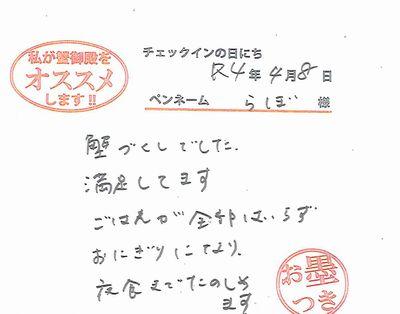 私が蟹御殿を
オススメ
します!!
チェックインの日にち
R4年4月8日
ペンネーム らぼ 様
蟹づくしでした.
満足してます
ごはんが全部はいらず
おにぎりにてより.
夜食までたのしめ
ます
お墨
つき